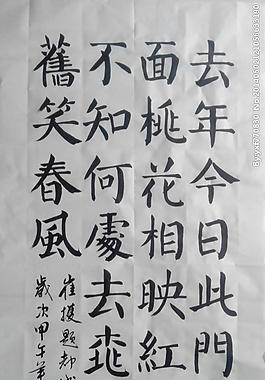 去年今日此門
面桃花相映紅
不知何處去桃
舊笑春風
崔護題都
歲次甲午